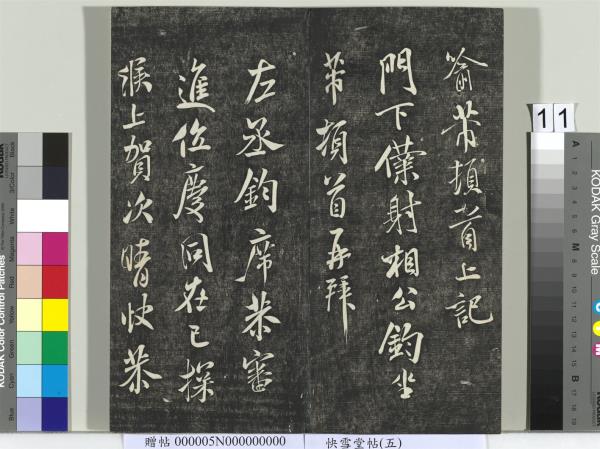 芾頓首上記
門下僕射相公鈞坐
芾頓首再拜
左丞鈞席恭審
進位慶同在已探
候上賀次晴快恭
11
KODAK Gray Scale
A 1 2 3 4 5 6 M 8 9 10 11 12 13 14 15 B 17 18 19
C
M
KODAK
KODAK Color Control Patches
Black
3/Color
White
Magenta
Red
Yellow
Green
Cyan
Blue
贈帖 000005N000000000 快雪堂帖(五)